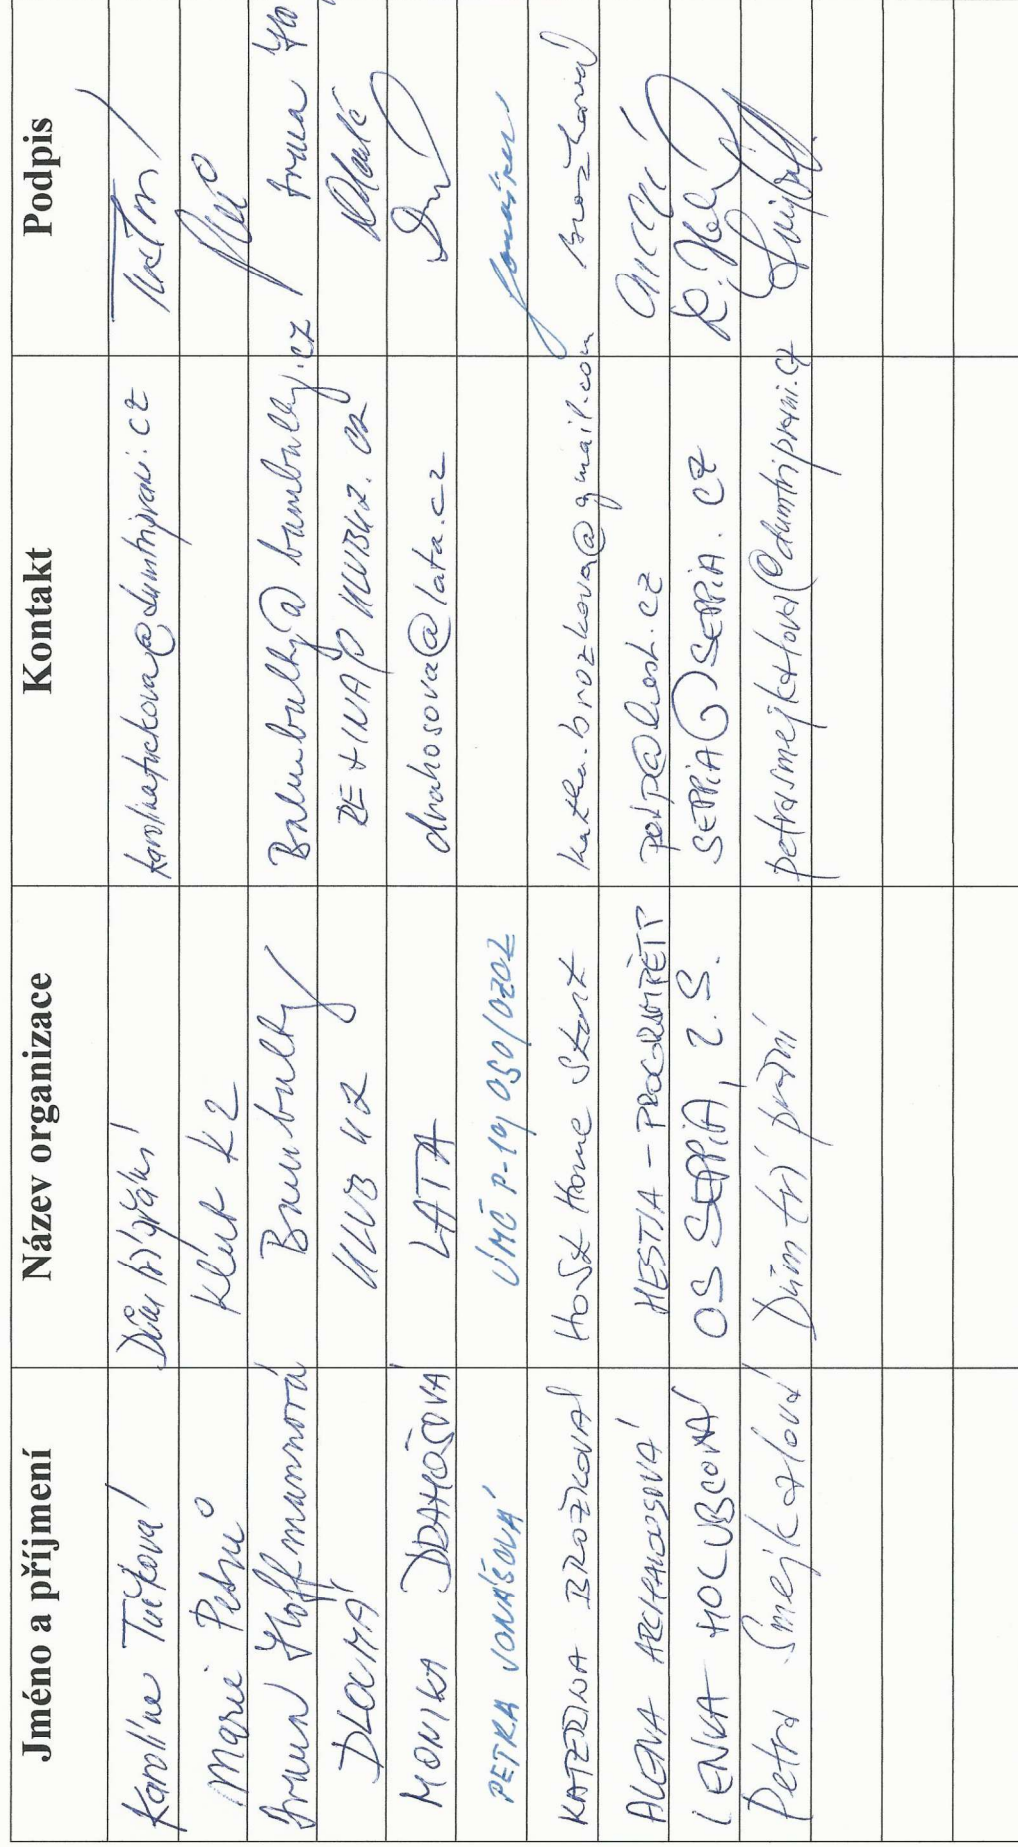 Jméno a příjmení Název organizace Kontakt Podpis
Karolína Tučková Dům tří přání karolinatuckova@dumtriprani.cz
Marie Petrů Klub K2
Hoffmannová Bambulky Bambulky@bambulky.cz
DLOUHÁ KLUB
MONIKA DRAHOŠOVÁ LATA drahosova@lata.cz
PETRA JONÁŠOVÁ ÚMČ P-19, OSO/OZOZ Jonášová
KATEŘINA BROŽKOVÁ HoSt Home Start katka.brozkova@gmail.com Brožková
ALENA HESTIA - PROGRAM PĚT P petp@hest.cz
LENKA HOLUBCOVÁ OS SEPPIA, Z.S. SEPPIA@SEPPIA.CZ
Petra Smejkalová Dům tří přání petrasmejkalova@dumtriprani.cz